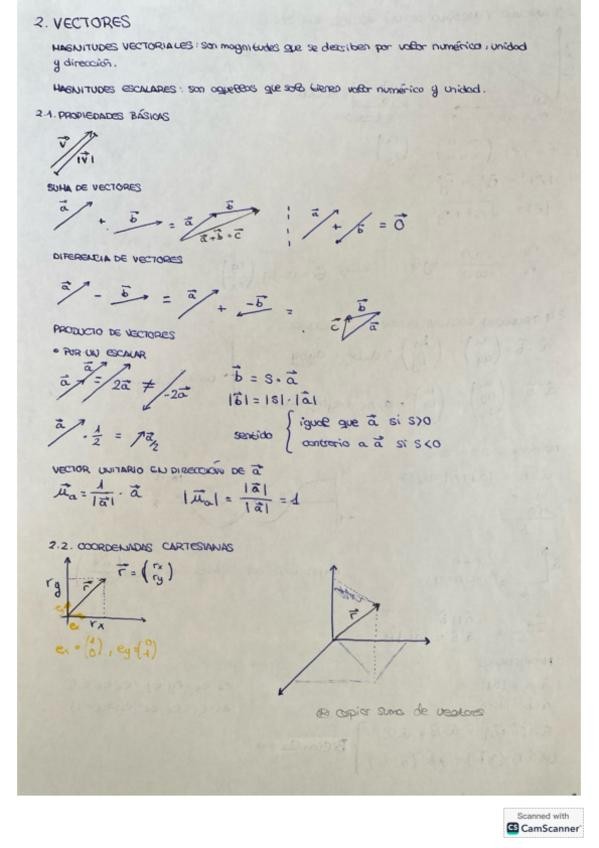 2. VECTORES
MAGNITUDES VECTORIALES: son magnitudes que se describen por valor numérico, unidad
y dirección.
MAGNITUDES ESCALARES: son aquellas que solo tienen valor numérico y unidad.
2.1. PROPIEDADES BÁSICAS
v⃗
|v⃗|
SUMA DE VECTORES
a⃗ + b⃗ = a⃗ b⃗ a⃗+b⃗=c⃗ a⃗ + b⃗ = 0⃗
DIFERENCIA DE VECTORES
a⃗ - b⃗ = a⃗ + -b⃗ = c⃗ b⃗ a⃗
PRODUCTO DE VECTORES
• POR UN ESCALAR
a⃗ a⃗ = 2a⃗ ≠ -2a⃗ b⃗ = s · a⃗
|b⃗| = |s| · |a⃗|
a⃗ · 1/2 = a⃗/2 sentido { igual que a⃗ si s>0
contrario a a⃗ si s<0
VECTOR UNITARIO EN DIRECCIÓN DE a⃗
μ⃗a = 1/|a⃗| · a⃗ |μ⃗a| = |a⃗|/|a⃗| = 1
2.2. COORDENADAS CARTESIANAS
ry r⃗ rx r⃗ = (rx ry)
r⃗
ey = (0 1)
(*) copiar suma de vectores
Scanned with
CS CamScanner